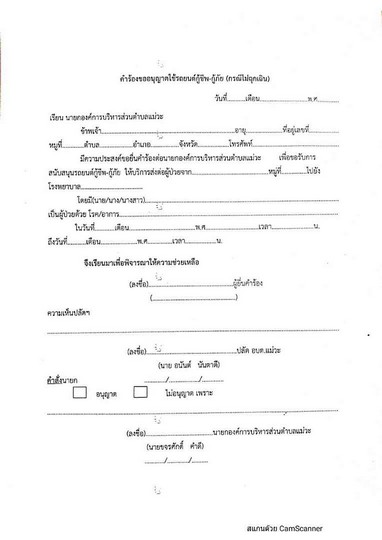 คำร้องขออนุญาตใช้รถยนต์กู้ชีพ-กู้ภัย (กรณีไม่ฉุกเฉิน)
วันที่............เดือน..............................พ.ศ..............
เรียน นายกองค์การบริหารส่วนตำบลแม่วะ
ข้าพเจ้า......................................................อายุ...............ที่อยู่เลขที่...............
หมู่ที่............ตำบล......................อำเภอ....................จังหวัด......................โทรศัพท์.........................
มีความประสงค์ขอยื่นคำร้องต่อนายกองค์การบริหารส่วนตำบลแม่วะ เพื่อขอรับการ
สนับสนุนรถยนต์กู้ชีพ-กู้ภัย ให้บริการส่งต่อผู้ป่วยจาก....................................หมู่ที่............ไปยัง
โรงพยาบาล..............................
โดยมี(นาย/นาง/นางสาว)..............................................................................
เป็นผู้ป่วยด้วย โรค/อาการ..............................................................................
ในวันที่............เดือน..............................พ.ศ.........................เวลา....................น.
ถึงวันที่............เดือน....................พ.ศ...............เวลา...............น.
จึงเรียนมาเพื่อพิจารณาให้ความช่วยเหลือ
(ลงชื่อ)........................................ผู้ยื่นคำร้อง
(........................................)
ความเห็นปลัดฯ
....................................................................................................
(ลงชื่อ)........................................ปลัด อบต.แม่วะ
(นาย อนันต์ นันตาดี)
........../........../..........
คำสั่งนายก
อนุญาต ไม่อนุญาต เพราะ
....................................................................................................
(ลงชื่อ)..............................นายกองค์การบริหารส่วนตำบลแม่วะ
(นายขจรศักดิ์ คำดี)
........../........../..........
สแกนด้วย CamScanner